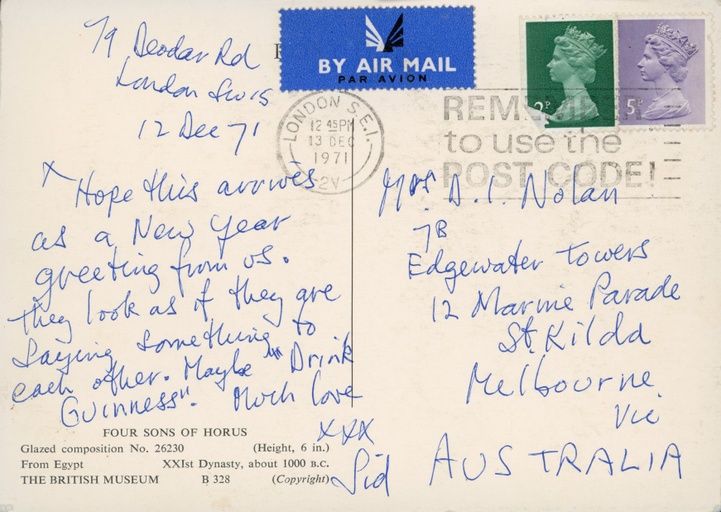 79 Deodar Rd
London SW15
12 Dec 71
x Hope this arrives
as a New Year
greeting from us.
They look as if they are
saying something to
each other. Maybe "Drink
Guinness". Much love
xxx
Sid
FOUR SONS OF HORUS
Glazed composition No. 26230 (Height, 6 in.)
From Egypt XXIst Dynasty, about 1000 B.C.
THE BRITISH MUSEUM B 328 (Copyright)
BY AIR MAIL
PAR AVION
2P
5P
LONDON S.E.1.
12 45 PM
13 DEC
1971
to use the
POST CODE!
Mrs. D. I. Nolan
7B
Edgewater Towers
12 Marine Parade
St. Kilda
Melbourne
Vic
AUSTRALIA